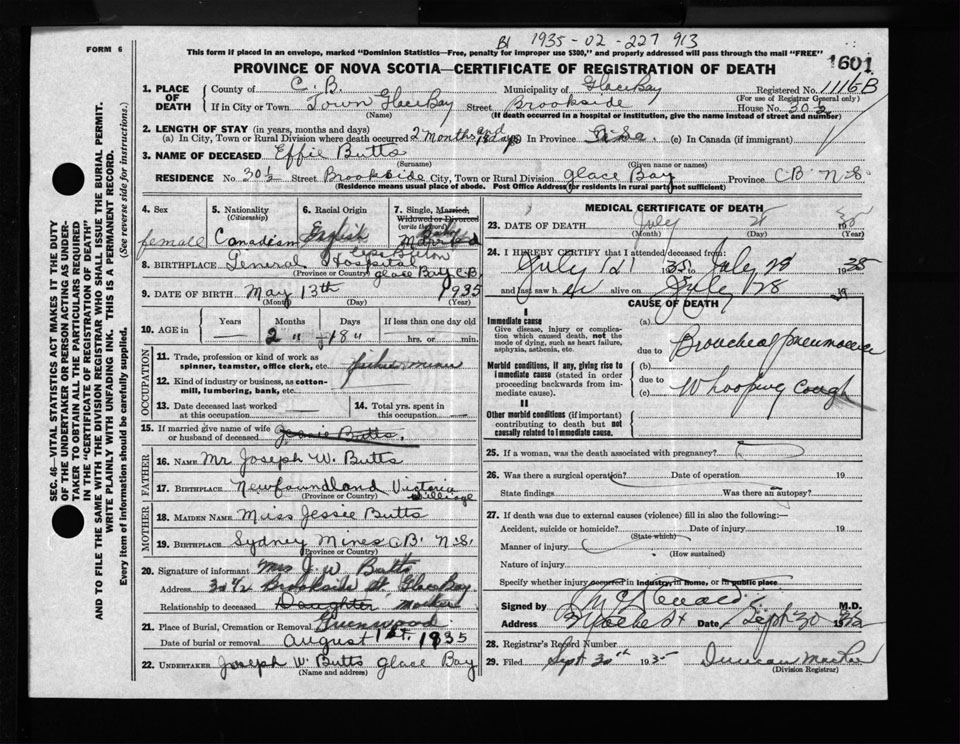 B1 1935-02-227 913
FORM 6
This form if placed in an envelope, marked "Dominion Statistics—Free, penalty for improper use $300," and properly addressed will pass through the mail "FREE"
1601
PROVINCE OF NOVA SCOTIA—CERTIFICATE OF REGISTRATION OF DEATH
1. PLACE OF DEATH County of C.B. Municipality of Glace Bay Registered No. 1116B
(For use of Registrar General only)
If in City or Town Town Glace Bay Street Brookside House No. 30½
(Name) (If death occurred in a hospital or institution, give the name instead of street and number)
2. LENGTH OF STAY (in years, months and days)
(a) In City, Town or Rural Division where death occurred 2 Months and 18 days (b) In Province (c) In Canada (if immigrant)
3. NAME OF DECEASED Effie Butts
(Surname) (Given name or names)
RESIDENCE No. 30½ Street Brookside City, Town or Rural Division Glace Bay Province C.B. N.S.
(Residence means usual place of abode. Post Office Address for residents in rural parts not sufficient)
4. Sex female
5. Nationality (Citizenship) Canadian
6. Racial Origin English
7. Single, Married, Widowed or Divorced (write the word) Baby Married
8. BIRTHPLACE General Hospital Cape Breton Glace Bay C.B.
(Province or Country)
9. DATE OF BIRTH May 13th 1935
(Month) (Day) (Year)
10. AGE in Years Months Days If less than one day old
2 " 18 " hrs. or min.
OCCUPATION
11. Trade, profession or kind of work as spinner, teamster, office clerk, etc.
12. Kind of industry or business, as cotton-mill, lumbering, bank, etc.
13. Date deceased last worked at this occupation
14. Total yrs. spent in this occupation
15. If married give name of wife or husband of deceased Jessie Butts.
FATHER
16. NAME Mr Joseph W. Butts
17. BIRTHPLACE Newfoundland Victoria Village
(Province or Country)
MOTHER
18. MAIDEN NAME Miss Jessie Butts
19. BIRTHPLACE Sydney Mines C.B. N.S.
(Province or Country)
20. Signature of informant Mrs J. W. Butts
Address 30 1/2 Brookside St, Glace Bay
Relationship to deceased Daughter Mother
21. Place of Burial, Cremation or Removal Greenwood
Date of burial or removal August 1st. 1935
22. UNDERTAKER Joseph W. Butts Glace Bay
(Name and address)
MEDICAL CERTIFICATE OF DEATH
23. DATE OF DEATH July 1935
(Month) (Day) (Year)
24. I HEREBY CERTIFY that I attended deceased from:
July 121 1935 to July 28 1935
and last saw her alive on July 28 19
CAUSE OF DEATH
I
Immediate cause
Give disease, injury or complication which caused death, not the mode of dying, such as heart failure, asphyxia, asthenia, etc.
(a) Broncheal pneumonia
due to
Morbid conditions, if any, giving rise to immediate cause (stated in order proceeding backwards from immediate cause).
(b)
due to
(c) Whooping Cough
II
Other morbid conditions (if important) contributing to death but not causally related to immediate cause.
25. If a woman, was the death associated with pregnancy?
26. Was there a surgical operation? Date of operation 19
State findings Was there an autopsy?
27. If death was due to external causes (violence) fill in also the following:—
Accident, suicide or homicide? Date of injury 19
(State which)
Manner of injury
(How sustained)
Nature of injury
Specify whether injury occurred in industry, in home, or in public place
Signed by M.D.
Address Date Sept 30 19
28. Registrar's Record Number
29. Filed Sept 30th 1935 Duncan
(Division Registrar)
SEC. 46—VITAL STATISTICS ACT MAKES IT THE DUTY OF THE UNDERTAKER OR PERSON ACTING AS UNDERTAKER TO OBTAIN ALL THE PARTICULARS REQUIRED IN THE "CERTIFICATE OF REGISTRATION OF DEATH" AND TO FILE THE SAME WITH THE DIVISION REGISTRAR WHO SHALL ISSUE THE BURIAL PERMIT.
WRITE PLAINLY WITH UNFADING INK. THIS IS A PERMANENT RECORD.
Every item of information should be carefully supplied. (See reverse side for instructions.)